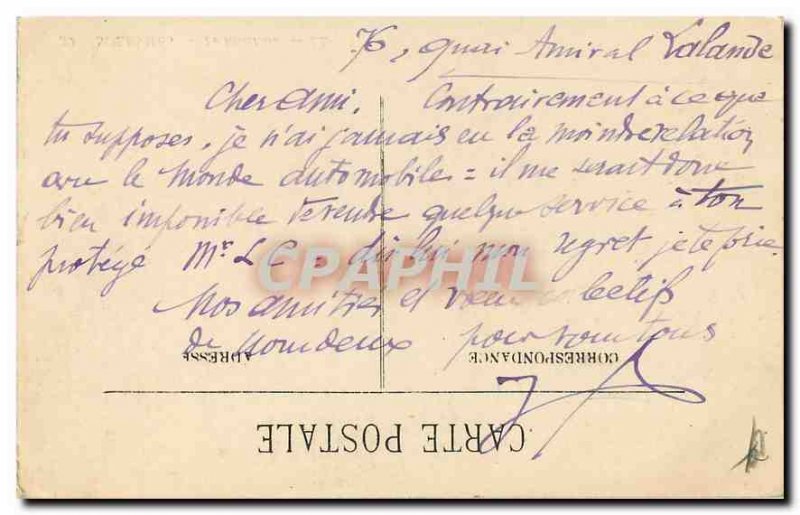 76, quai Amiral Lalande
Cher Ami. Contrairement à ce que
tu supposes, je n'ai jamais eu la moindre relation
avec le monde automobile = il me serait donc
bien impossible de rendre quelque service à ton
protégé Mr L C. dis lui mon regret je te prie
Nos amitiés et vœux
de nous deux pour vous tous
ADRESSE
CORRESPONDANCE
CARTE POSTALE
CPARPHIL